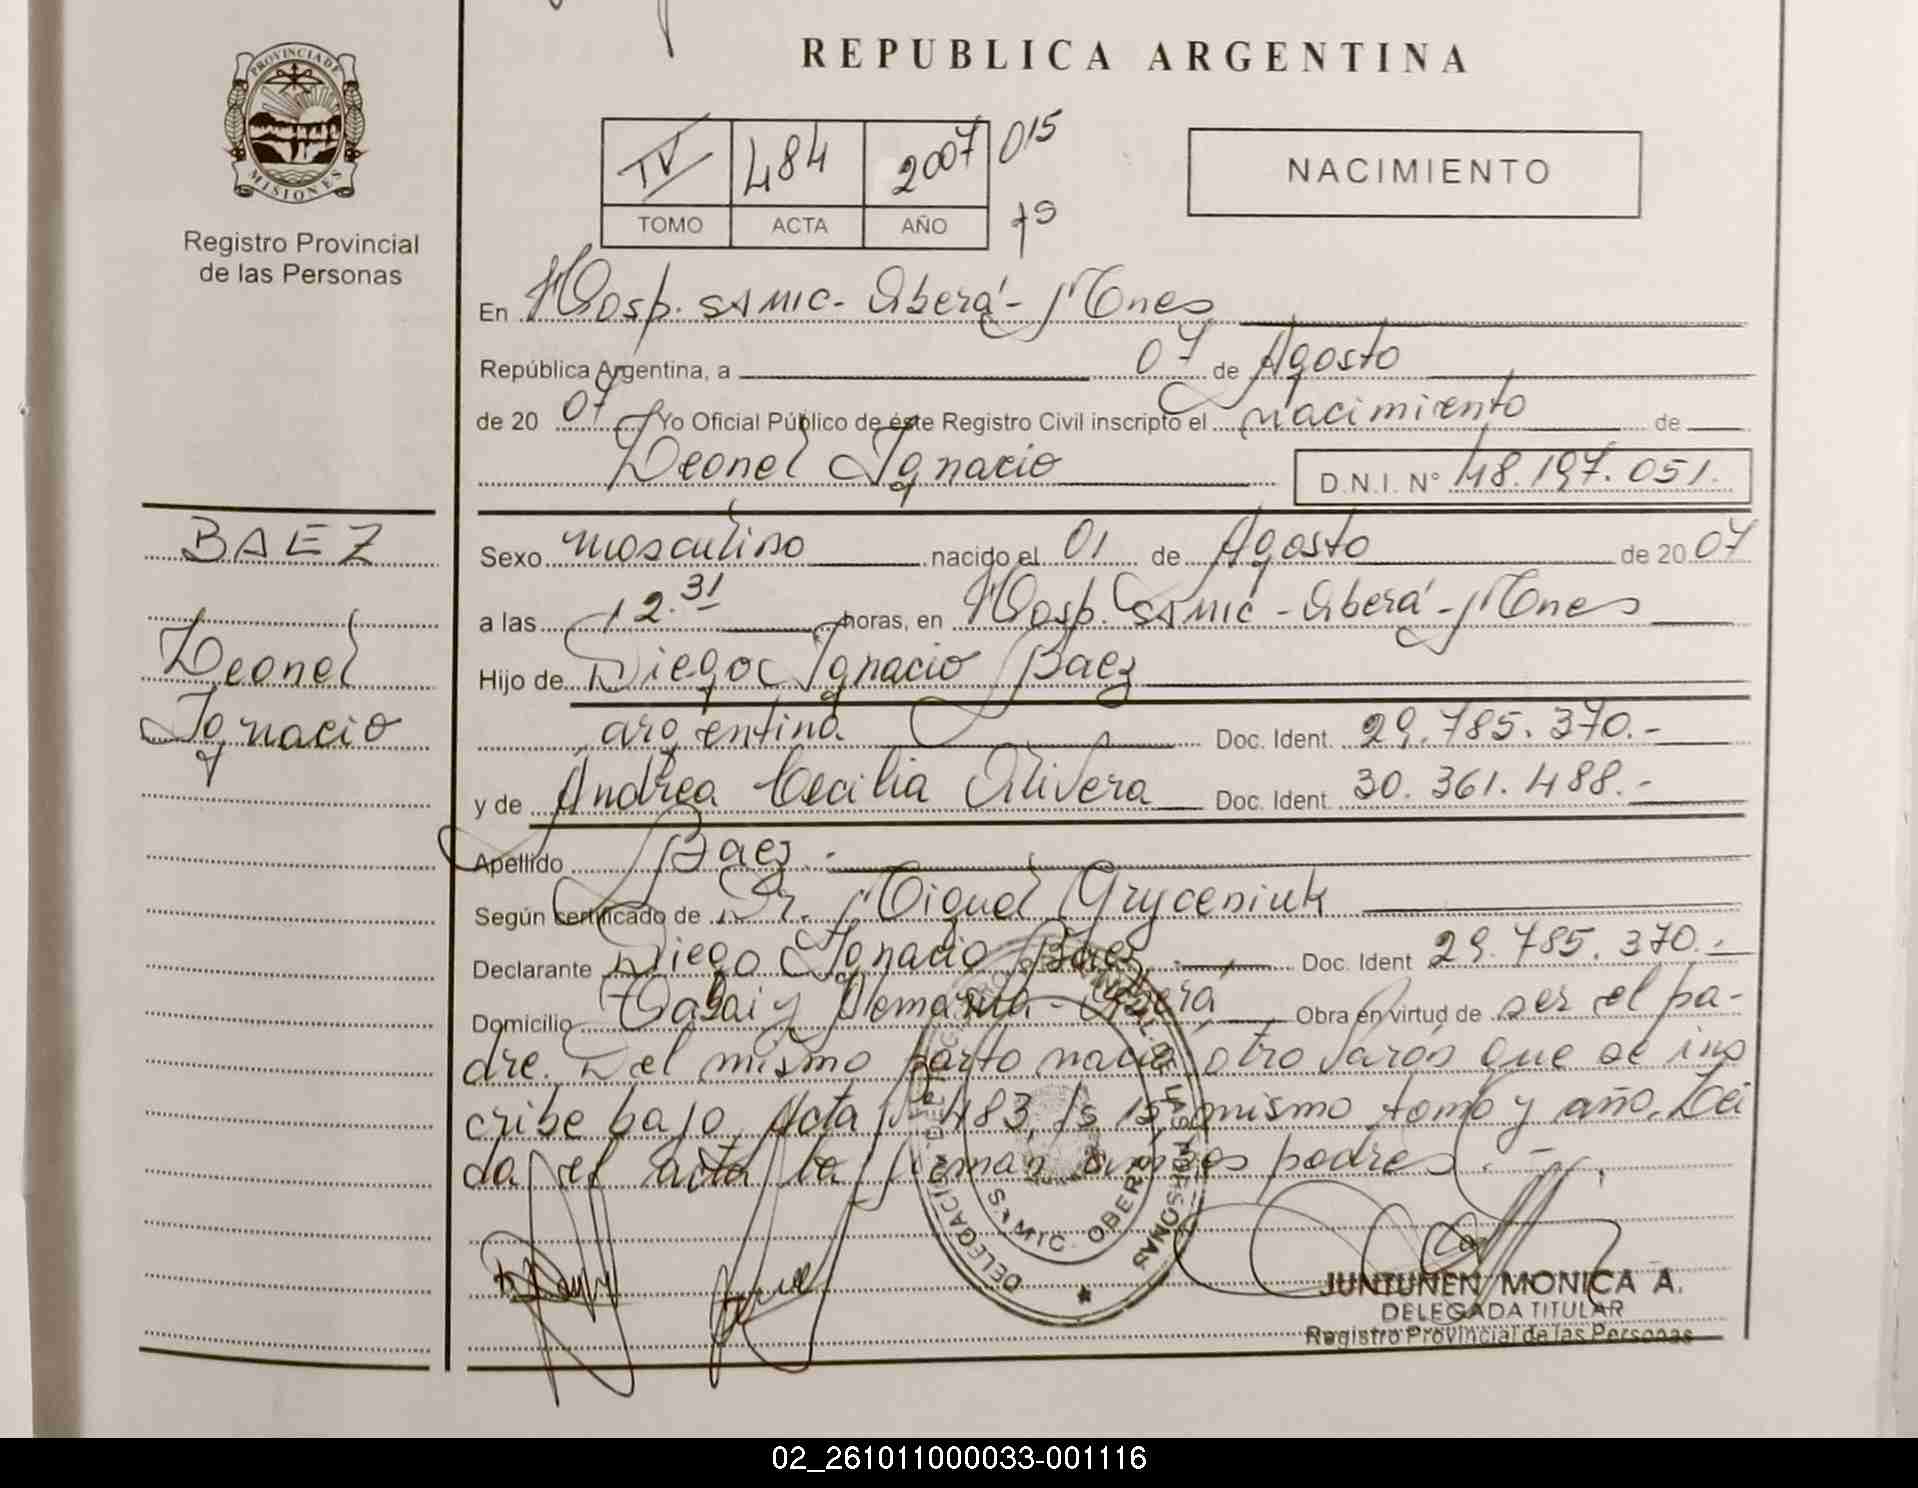 REPUBLICA ARGENTINA
PROVINCIA DE MISIONES
Registro Provincial
de las Personas
IV 484 2007 015
TOMO ACTA AÑO fs
NACIMIENTO
En Hosp. SAMIC - Oberá - Mnes
República Argentina, a 07 de Agosto
de 20 07 Yo Oficial Público de éste Registro Civil inscripto el nacimiento de
Leonel Ignacio D.N.I. N° 48.197.051.
BAEZ
Leonel
Ignacio
Sexo masculino nacido el 01 de Agosto de 20 07
a las 12.31 horas, en Hosp. SAMIC - Oberá - Mnes
Hijo de Diego Ignacio Baez
argentina Doc. Ident. 29.785.370.-
y de Andrea Cecilia Olivera Doc. Ident. 30.361.488.-
Apellido Baez.-
Según certificado de Dr. Miguel Gryceniuk
Declarante Diego Ignacio Baez Doc. Ident 29.785.370.-
Domicilio y Alemania - Oberá Obra en virtud de ser el pa-
dre. Del mismo parto nació otro varón que se ins
cribe bajo Acta 483, fs 15, mismo tomo y año. Leí
da el acta la firman ambos padres.-
DELEGACION
DE LAS PERSONAS
SAMIC OBERA
JUNTUNEN MONICA A.
DELEGADA TITULAR
Registro Provincial de las Personas
02_261011000033-001116